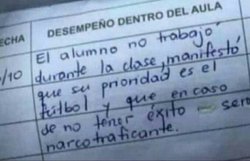 ECHA DESEMPEÑO DENTRO DEL AULA
/10 El alumno no trabajó
durante la clase, manifestó
que su prioridad es el
fútbol y que en caso
de no tener éxito – será
narcotraficante.